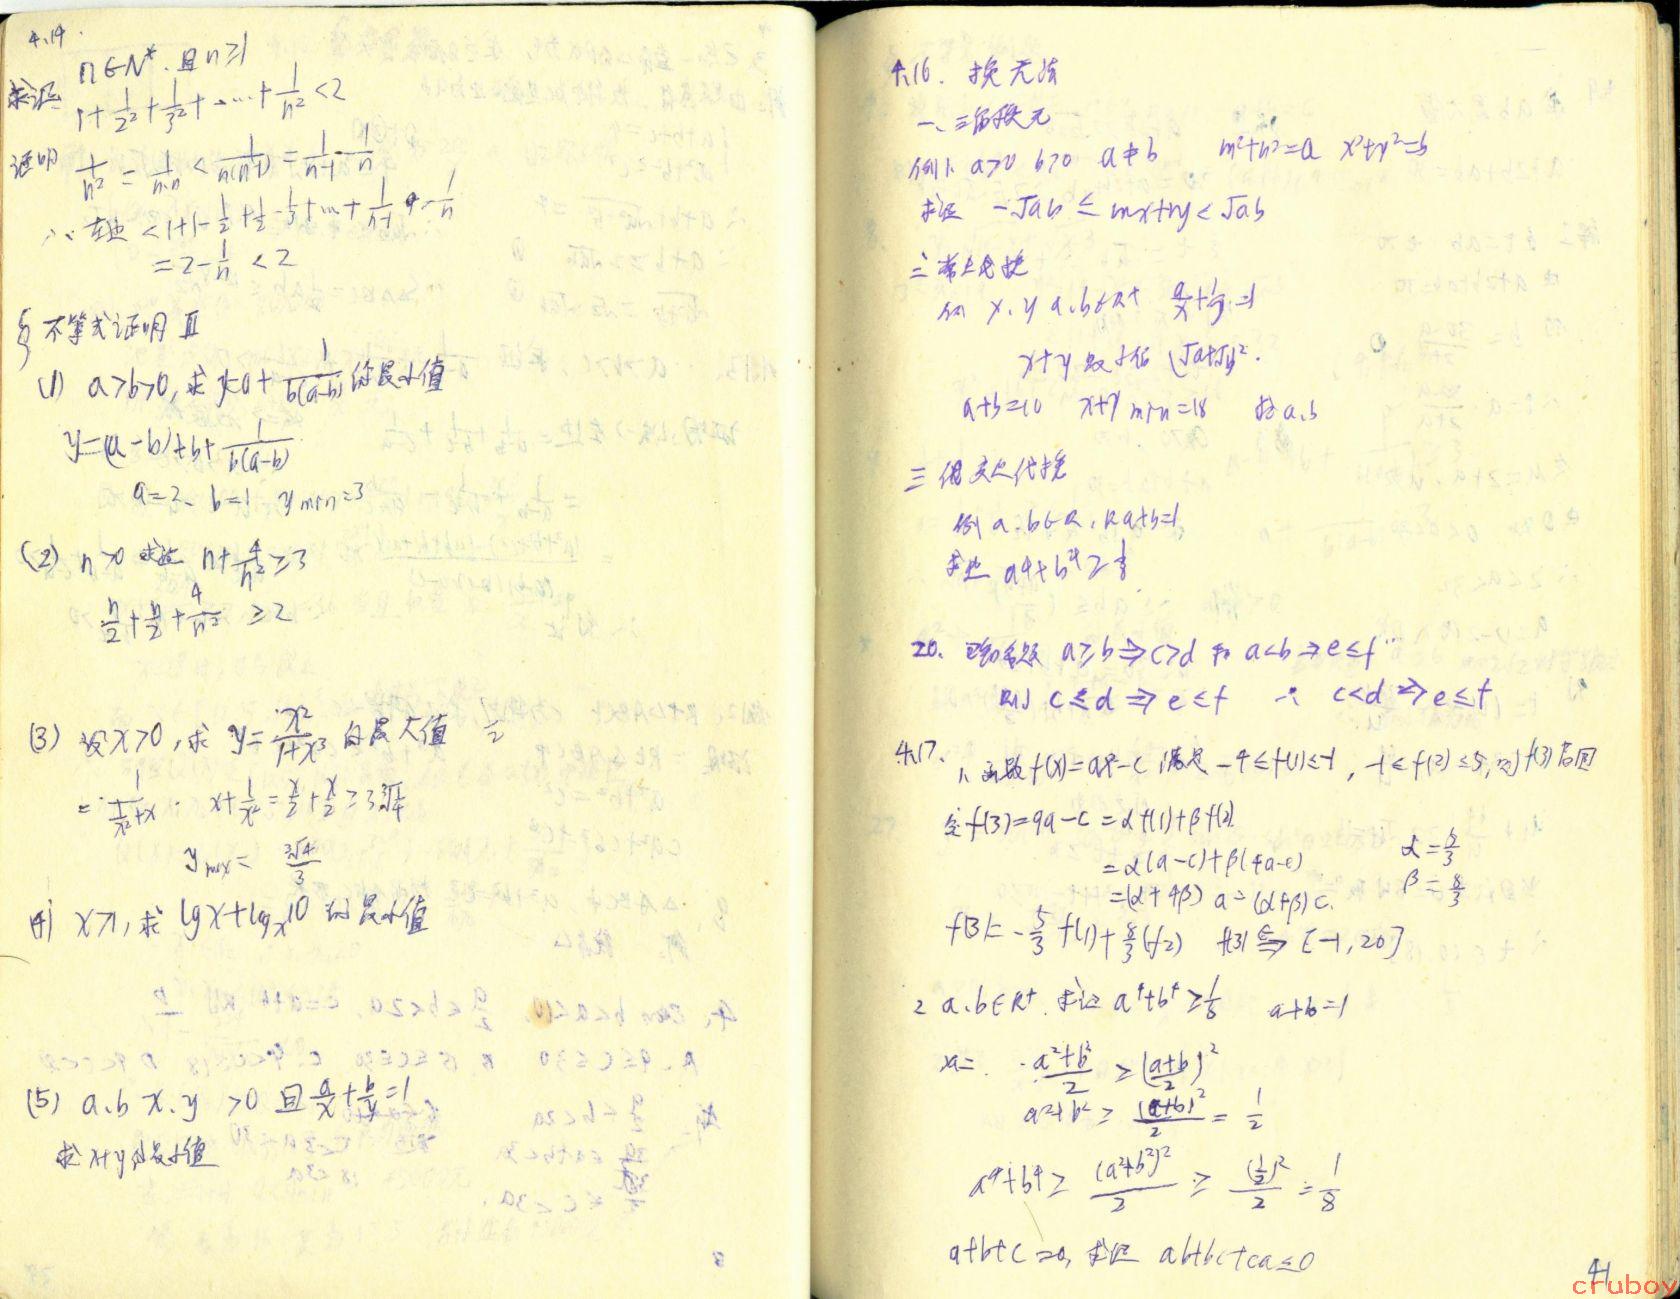 4.14.
n∈N*. 且n≥1
求证 1+1/2²+1/3²+……+1/n²<2
证明 1/n² = 1/n·n < 1/n(n-1) = 1/n-1 - 1/n
∴ 左边 <1+1-1/2+1/2-1/3+…+1/n-1 - 1/n
=2-1/n <2
§ 不等式证明 Ⅲ
(1) a>b>0, 求 y=a+1/b(a-b) 的最小值
y=(a-b)+b+1/b(a-b)
a=2、b=1 y min=3
(2) n>0 求证 n+4/n²≥3
n/2+n/2+4/n² ≥2
(3) 设x>0, 求 y=x²/1+x³ 的最大值
= 1/(1/x²+x) . x+1/x²=x/2+x/2≥3∛1/4
y max= ∛4/3
(4) x>1, 求 lgx+log x 10 的最小值
(5) a.b x.y >0 且a/x+b/y=1
求x+y的最小值
3
4.16. 换元法
一、三角换元
例1. a>0 b>0 a≠b m²+n²=a x²+y²=b
求证 -√ab ≤ mx+ny<√ab
二 常量代换
例 x、y a.b∈R+ a/x+b/y=1
x+y 最小值 (√a+√b)².
a+b=10 x+y min=18 求a.b
例 a.b∈R, 且a+b=1
求证 a4+b⁴≥1/8
20. 已知命题 a≥b⇒c>d 和 a<b⇒e≤f
则 c≤d ⇒e≤f ∴ c<d⇒e≤f
4.17.
1. 函数f(x)=ax²-c 满足 -4≤f(1)≤-1, -1≤f(2)≤5, 则f(3)范围
令f(3)=9a-c =αf(1)+βf(2)
=α(a-c)+β(4a-c)
=(α+4β) a-(α+β)c.
α=5/3
β=8/3
f(3)=-5/3 f(1)+8/3(f2) f(3)∈ [-1,20]
2 a.b∈R+. 求证 a⁴+b⁴≥1/8 a+b=1
a²+b²/2 ≥(a+b/2)²
a²+b²≥(a+b)²/2 = 1/2
a4+b4≥ (a²+b²)²/2 ≥ (1/2)²/2 = 1/8
a+b+c=0, 求证 ab+bc+ca≤0
41
cruboy